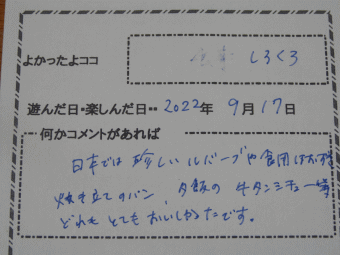 よかったよココ
しろくろ
遊んだ日・楽しんだ日・・ 2022年 9月 17日
何かコメントがあれば
日本では 珍しい ルバーブや食用ほおずき
焼き立てのパン、夕飯の 牛タンシチュー 等
どれも とても おいしかったです。